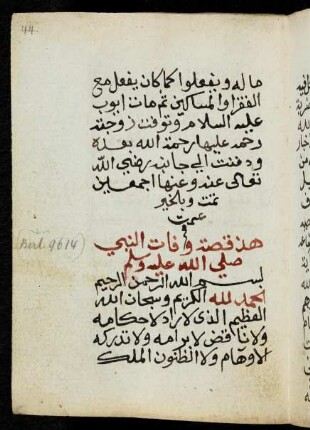 44
ماله ويفعلوا كما كان يفعل مع
الفقرا والمساكين ثم مات ايوب
عليه السلام وتوفت زوجته
رحمة عليها رحمة الله بعده
ودفنت الي جانبه رضي الله
تعالى عنه وعنها اجمعين
تمت وبالخير
عمت
هذه قصة وفات النبي
صلي الله عليه وسلم
(Berl. 9614)
بسم الله الرحمن الرحيم
الحمد لله الكريم وسبحان الله
العظيم الذي لا راد لاحكامه
ولا ناقض لابرامه ولا تدركه
الاوهام ولا الظنون الملك